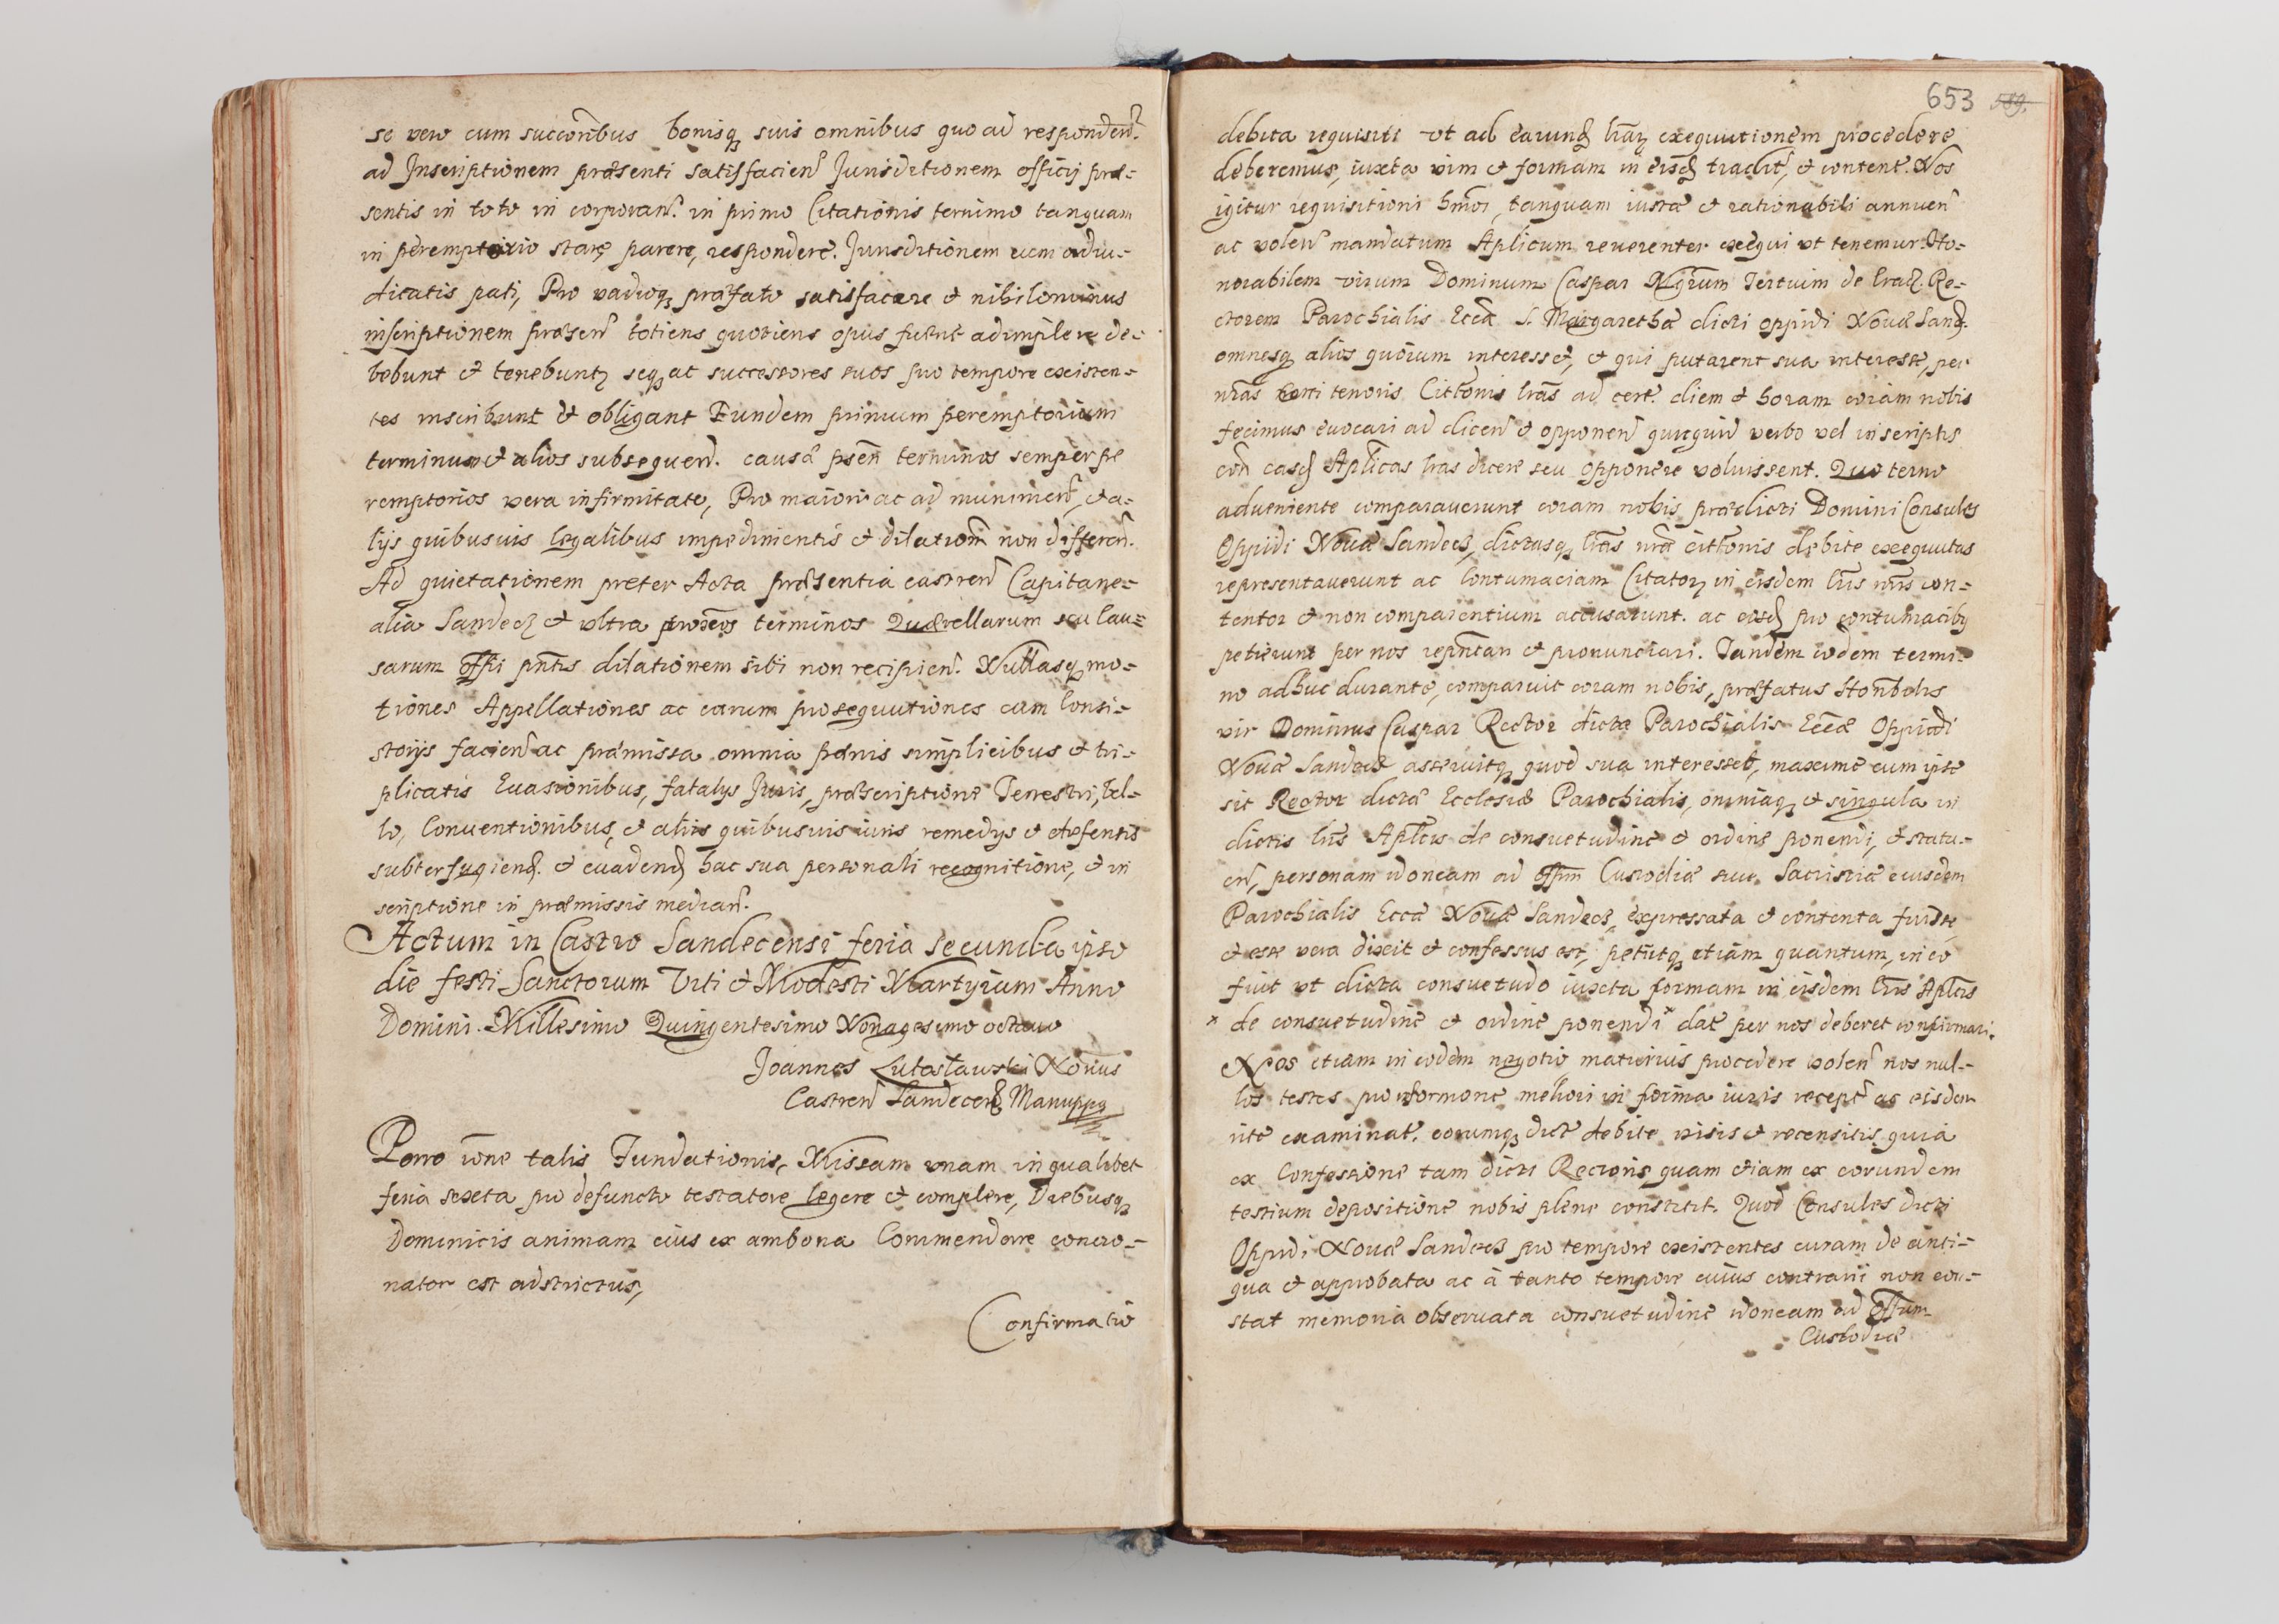 se vero cum succõribus bonisq3 suis omnibus quo ad responden̄.
ad Inscriptionem præsenti satisfacien̄ Jurisditionem officij præ-
sentis in toto in corporan̄. in primo Citationis termino tanquam
in peremptorio stare parere, respondere. Jurisditionem eum adiu-
dicatis pati, Pro vadioq3 præfato satisfacere et nihilominus
inscriptionem præsen̄ totiens quotiens opus fuerit adimplere de-
bebunt et tenebuntr seq3 ac successores suos pro tempore existen-
tes inscribunt et obligant Eundem primum peremptorium
terminum et alios subsequen̄. causā psēn terminos semper pe
remptorios vera infirmitate, Pro maiori ac ad munimen̄, et a-
lijs quibusuis legalibus impedimentis et dilationīn non differen̄.
Ad quietationem preter Acta præsentia castren̄ Capitane-
alia Sandecz et vltra terminos Quærellarum seu Cau=
sarum offi pñtis dilationem sibi non recipien̄. Nullasq3 mo-
tiones Appellationes ac earum prosequutiones eam Consi-
storijs facien̄ ac præmissa omnia pænis simplicibus et tri-
plicatis Euasionibus, fatalys Juris, præscriptione Terrestri, Bel-
lo, Conuentionibus, et aliis quibusuis iuris remedys et defensis
subterfugiend. et euadend hac sua personali recognitione, et in
scriptione in præmissis median̄.
Actum in Castro Sandecensi feria secunda ipso
die festi Sanctorum Viti et Modesti Martyrium Anno
Domini. Millesimo Quingentesimo Nonagesimo octauo
Joannes Lutosławski Norius
Castren̄ Sandecen̄ Manuppa
Porro iõne talis Fundationis, Missam vnam in qualibet
feria sexta pro defuncto testatore legere et complere, Diebusq3
Dominicis animam eius ex ambona Commendare concio-
nator est adstrictus,
Confirmatio
653 589.
debita requisiti vt ad earund lrãr exequutionem procedere
deberemus, iuxta vim et formam in eisd tradit, et content. Nos
igitur requisitioni hmõi, tanquam iustæ et rationabili annuen̄
ac volen̄ mandatum Aplicum reuerenter exequi vt tenemur. Ho-
norabilem virum Dominum Caspar Nigrum Tertium de Crac. Re-
ctorem Parochialis Eccæ S. Margarethæ dicti oppidi Nouæ Sand.
omnesq3 alios quorum interesset, et qui putarent sua interesse, per
nrãs certi tenoris Cittonis lrãs ad cert. diem et horam coram nobis
fecimus euocari ad dicen̄ et opponen̄ quicquid verbo vel in scriptis
con̄ casd Aplicas lras dicere seu opponere voluissent. Quo terno
adueniente comparauerunt coram nobis prædicti Domini Consules
Oppidi Nouæ Sandecz, dictasq3 lrãs nrã cittonis debite exequutas
representauerunt ac contumaciam Citator in eisdem lris nris con-
tentor et non comparentium accusarunt. ac eosd pro contumacibus
petierunt per nos repñtari et pronunciari. Tandem eodem termi-
no adhuc durante, comparuit coram nobis, præfatus Honbolis
vir Dominus Caspar Rector dictæ Parochialis Eccæ Oppidi
Nouæ Sandecz asseruitq3 quod sua interesset, maxime cum ipse
sit Rector dictæ Ecclesiæ Parochialis, omniaq3 et singula in
dictis lris Aplcis de consuetudine et ordine ponendi, et statu-
en̄, personam idoneam ad offim Custodiæ siue Sacristiæ eiusdem
Parochialis Eccæ Nouæ Sandecz, expressata et contenta fuisse
et esse vera dixit et confessus est, petiitq3 etiam quantum, in eo
fuit vt dicta consuetudo iuxta formam in eisdem lris Aplcis
× de consuetudine et ordine ponendi × dat per nos deberet confirmari.
Nos etiam in eodem negotio maturius procedere volen̄ nos nul-
los testes pro informone meliori in forma iuris recept ac eisdem
rite examinat. eorumq3 dict debite visis et recensitis, quia
ex Confessione tam dicti Rectoris quam etiam ex eorundem
testium depositione nobis plene constitit. Quod Consules dicti
Oppidi Nouæ Sandecz pro tempore existentes curam de anti-
qua et approbata ac à tanto tempore cuius contrarii non con-
stat memoria obseruata consuetudine idoneam ad offium
Custodiæ